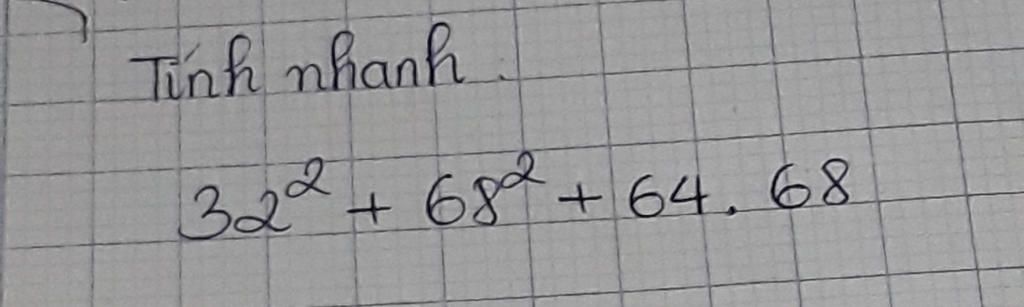 Tính nhanh.
32² + 68² + 64.68